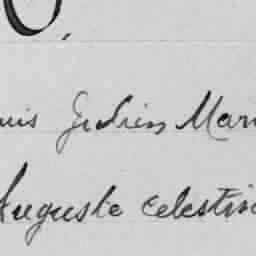 uis Julien Mari
Auguste Celestin